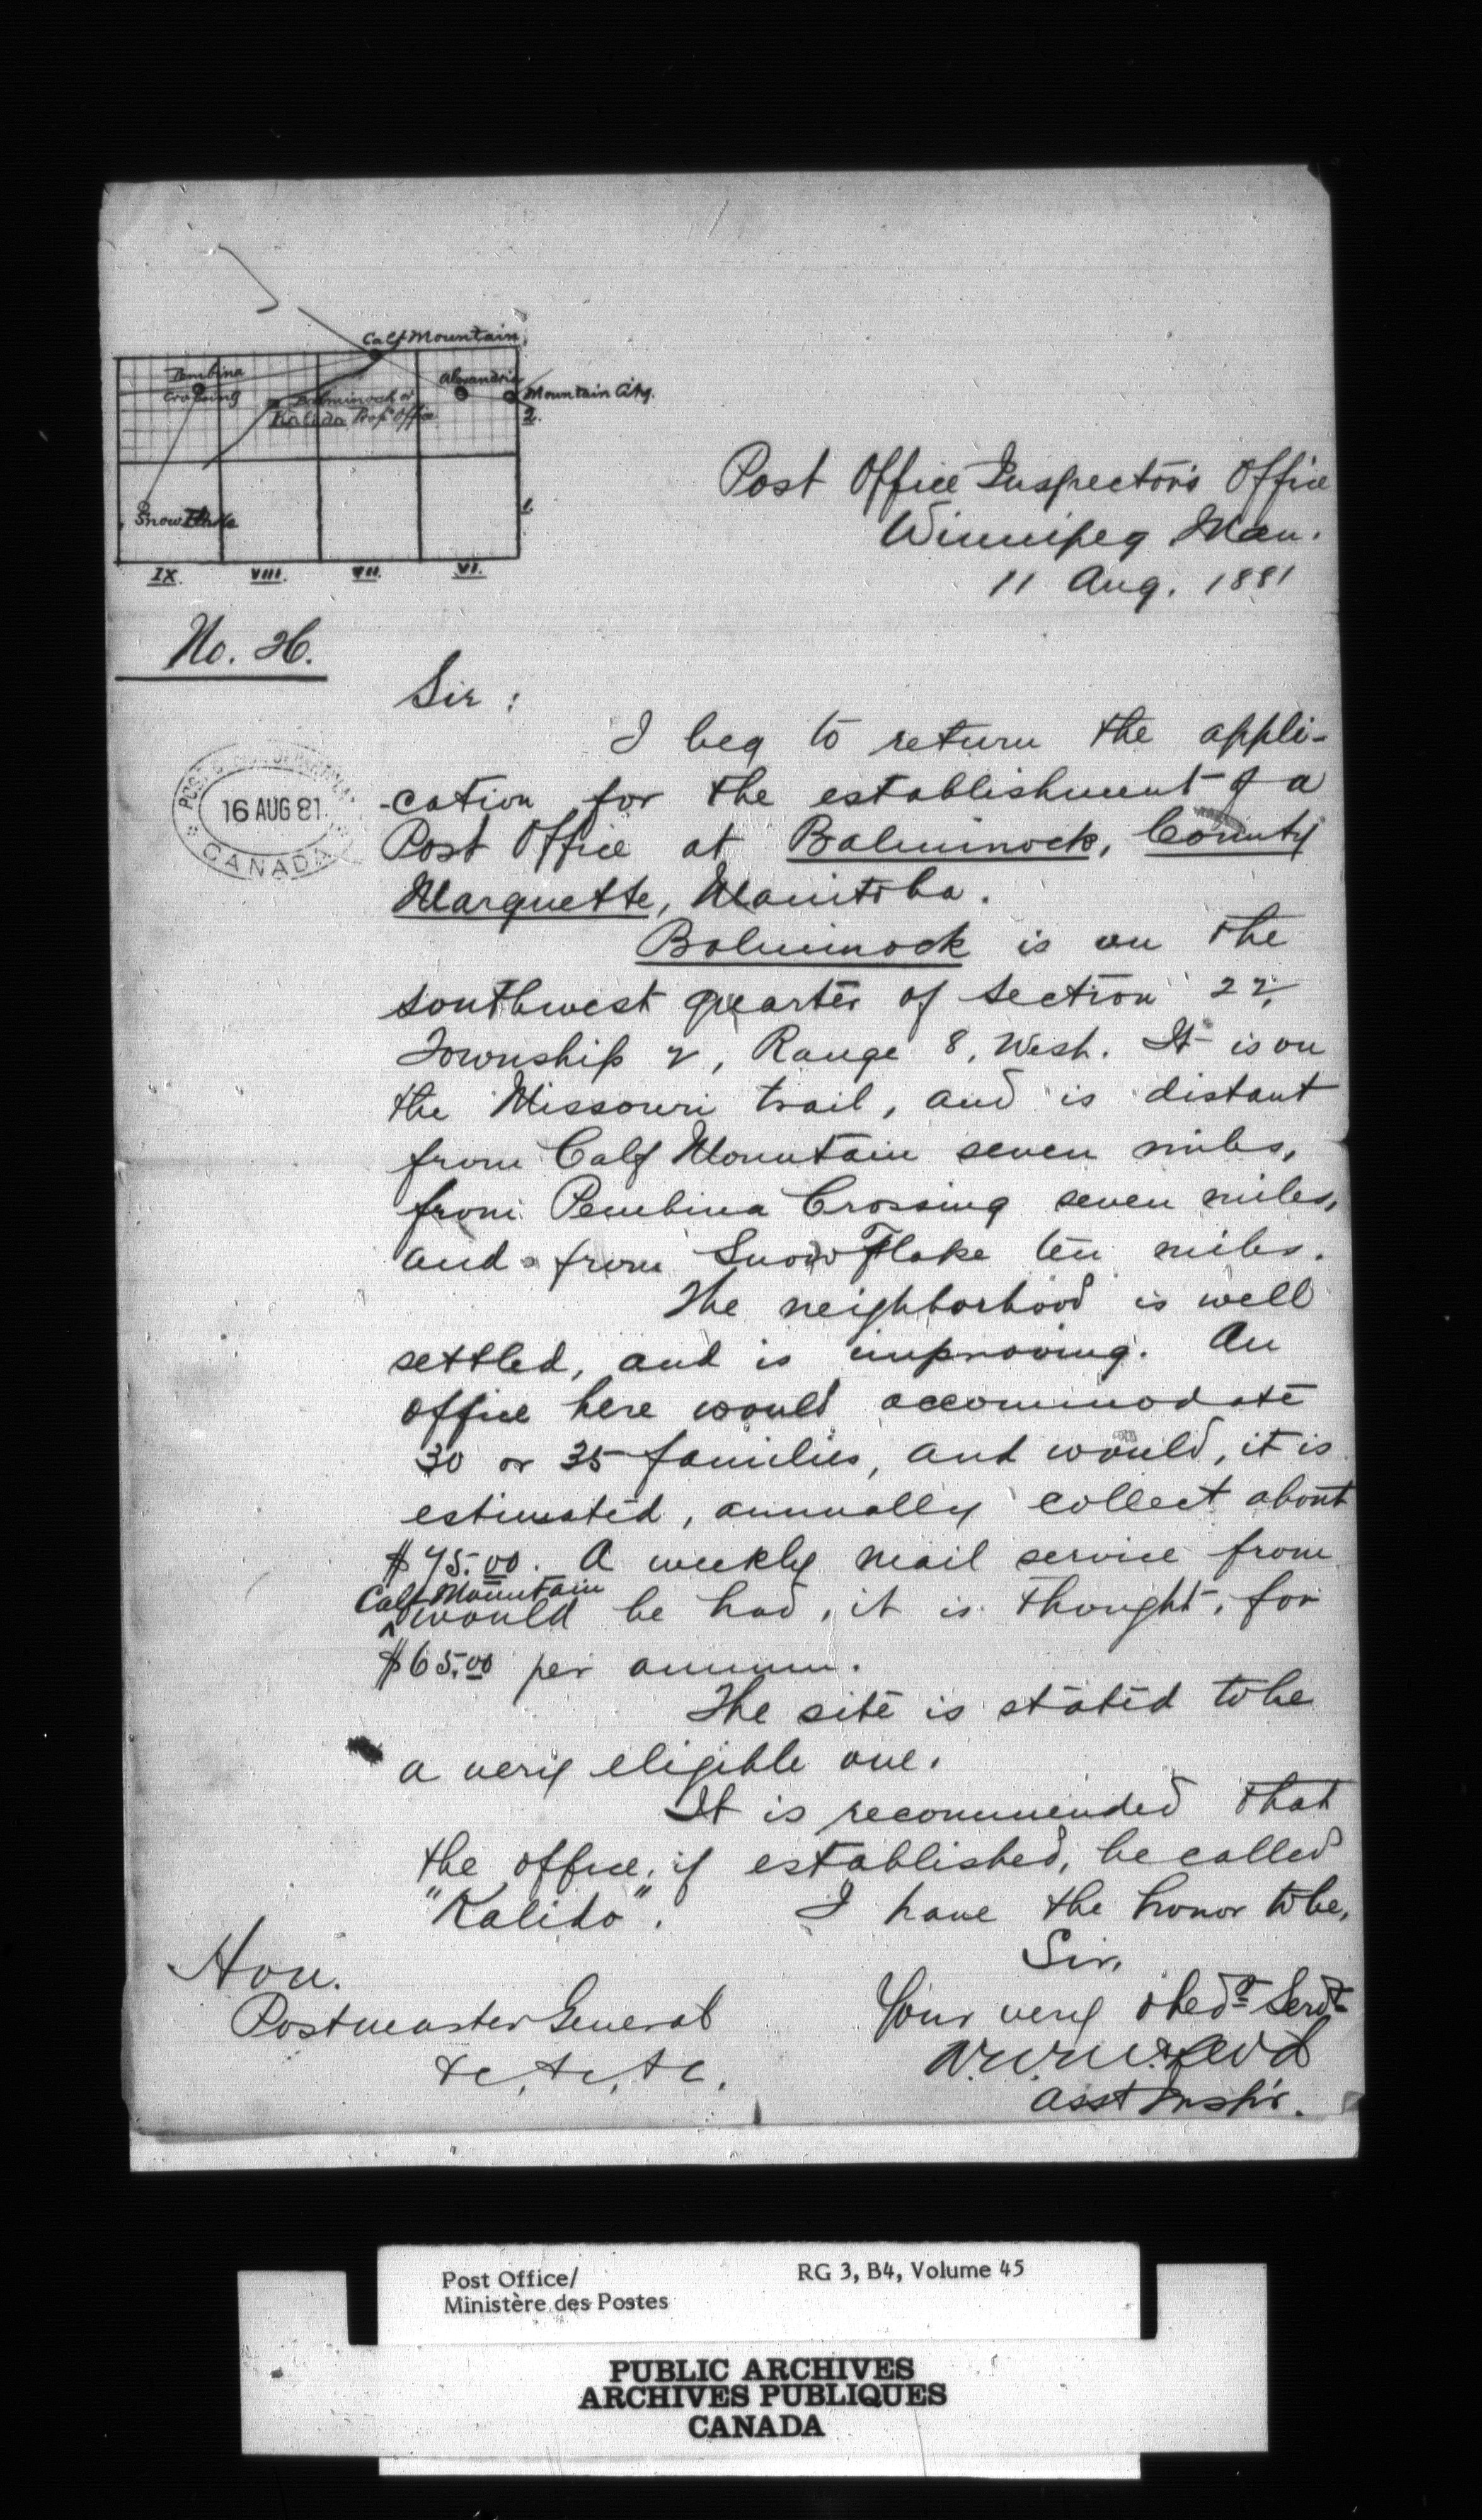 Calf Mountain.
Pembina
Crossing
Alexandria
Mountain City.
Balmimock or
Kalida Prop. Office
2.
1.
Snow Flake
IX. VIII. VII. VI.
Post Office Inspector's Office
Winnipeg Man.
11 Aug. 1881
No. 26.
Sir :
I beg to return the appli-
-cation for the establishment of a
Post Office at Balmimock, County
Marquette, Manitoba.
16 AUG 81
CANADA
Balmimock is on the
southwest quarter of section 22,
Township 2, Range 8, West. It is on
the Missouri trail, and is distant
from Calf Mountain seven miles,
from Pembina Crossing seven miles,
and from Snow Flake ten miles.
The neighborhood is well
settled, and is improving. An
office here would accommodate
30 or 35 families, and would, it is
estimated, annually collect about
$75.00. A weekly mail service from
Calf Mountain
would be had, it is thought, for
$65.00 per annum.
The site is stated to be
a very eligible one.
It is recommended that
the office, if established, be called
"Kalida". I have the honor to be,
Sir,
Your very obedt Servt
Asst Inspr.
Hon.
Postmaster General
&c, &c, &c.
Post Office/
Ministère des Postes
RG 3, B4, Volume 45
PUBLIC ARCHIVES
ARCHIVES PUBLIQUES
CANADA